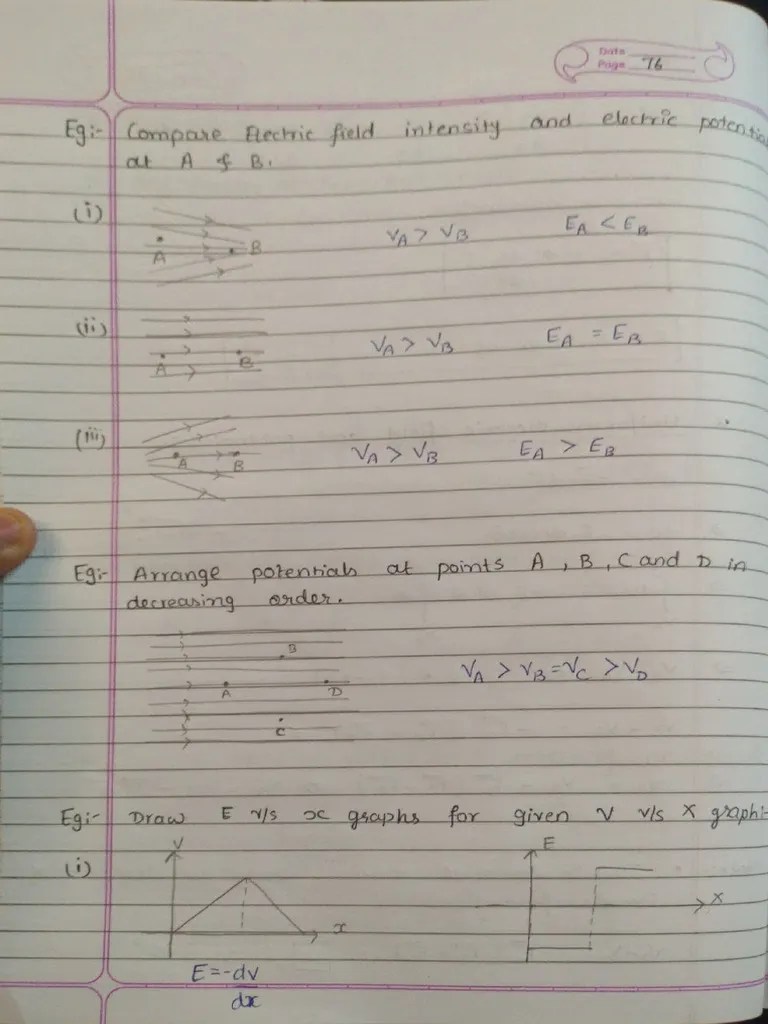 Date
Page 76
Eg:- Compare Electric field intensity and electric potential
at A & B.
(i) A B VA > VB EA < EB
(ii) A B VA > VB EA = EB
(iii) A B VA > VB EA > EB
Eg:- Arrange potentials at points A, B, C and D in
decreasing order.
B
A D VA > VB = VC > VD
C
Eg:- Draw E v/s x graphs for given V v/s X graph:-
(i) V x E X
E = -dv
dx